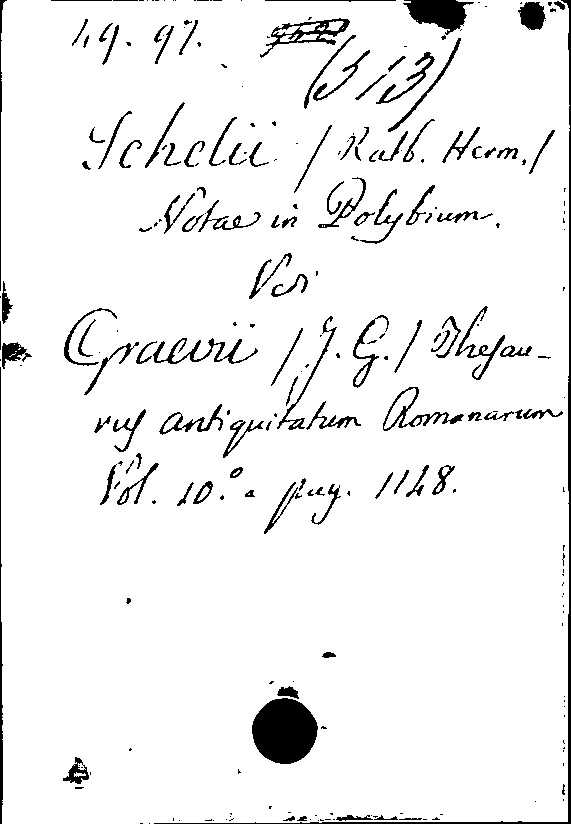 49. 97.
(313)
Schelii / Ratb. Herm./
Notae in Polybium.
Vdi
Graevii / J. G./ Thesau-
rus antiquitatum Romanarum
Vol. 10.° a pag. 1148.